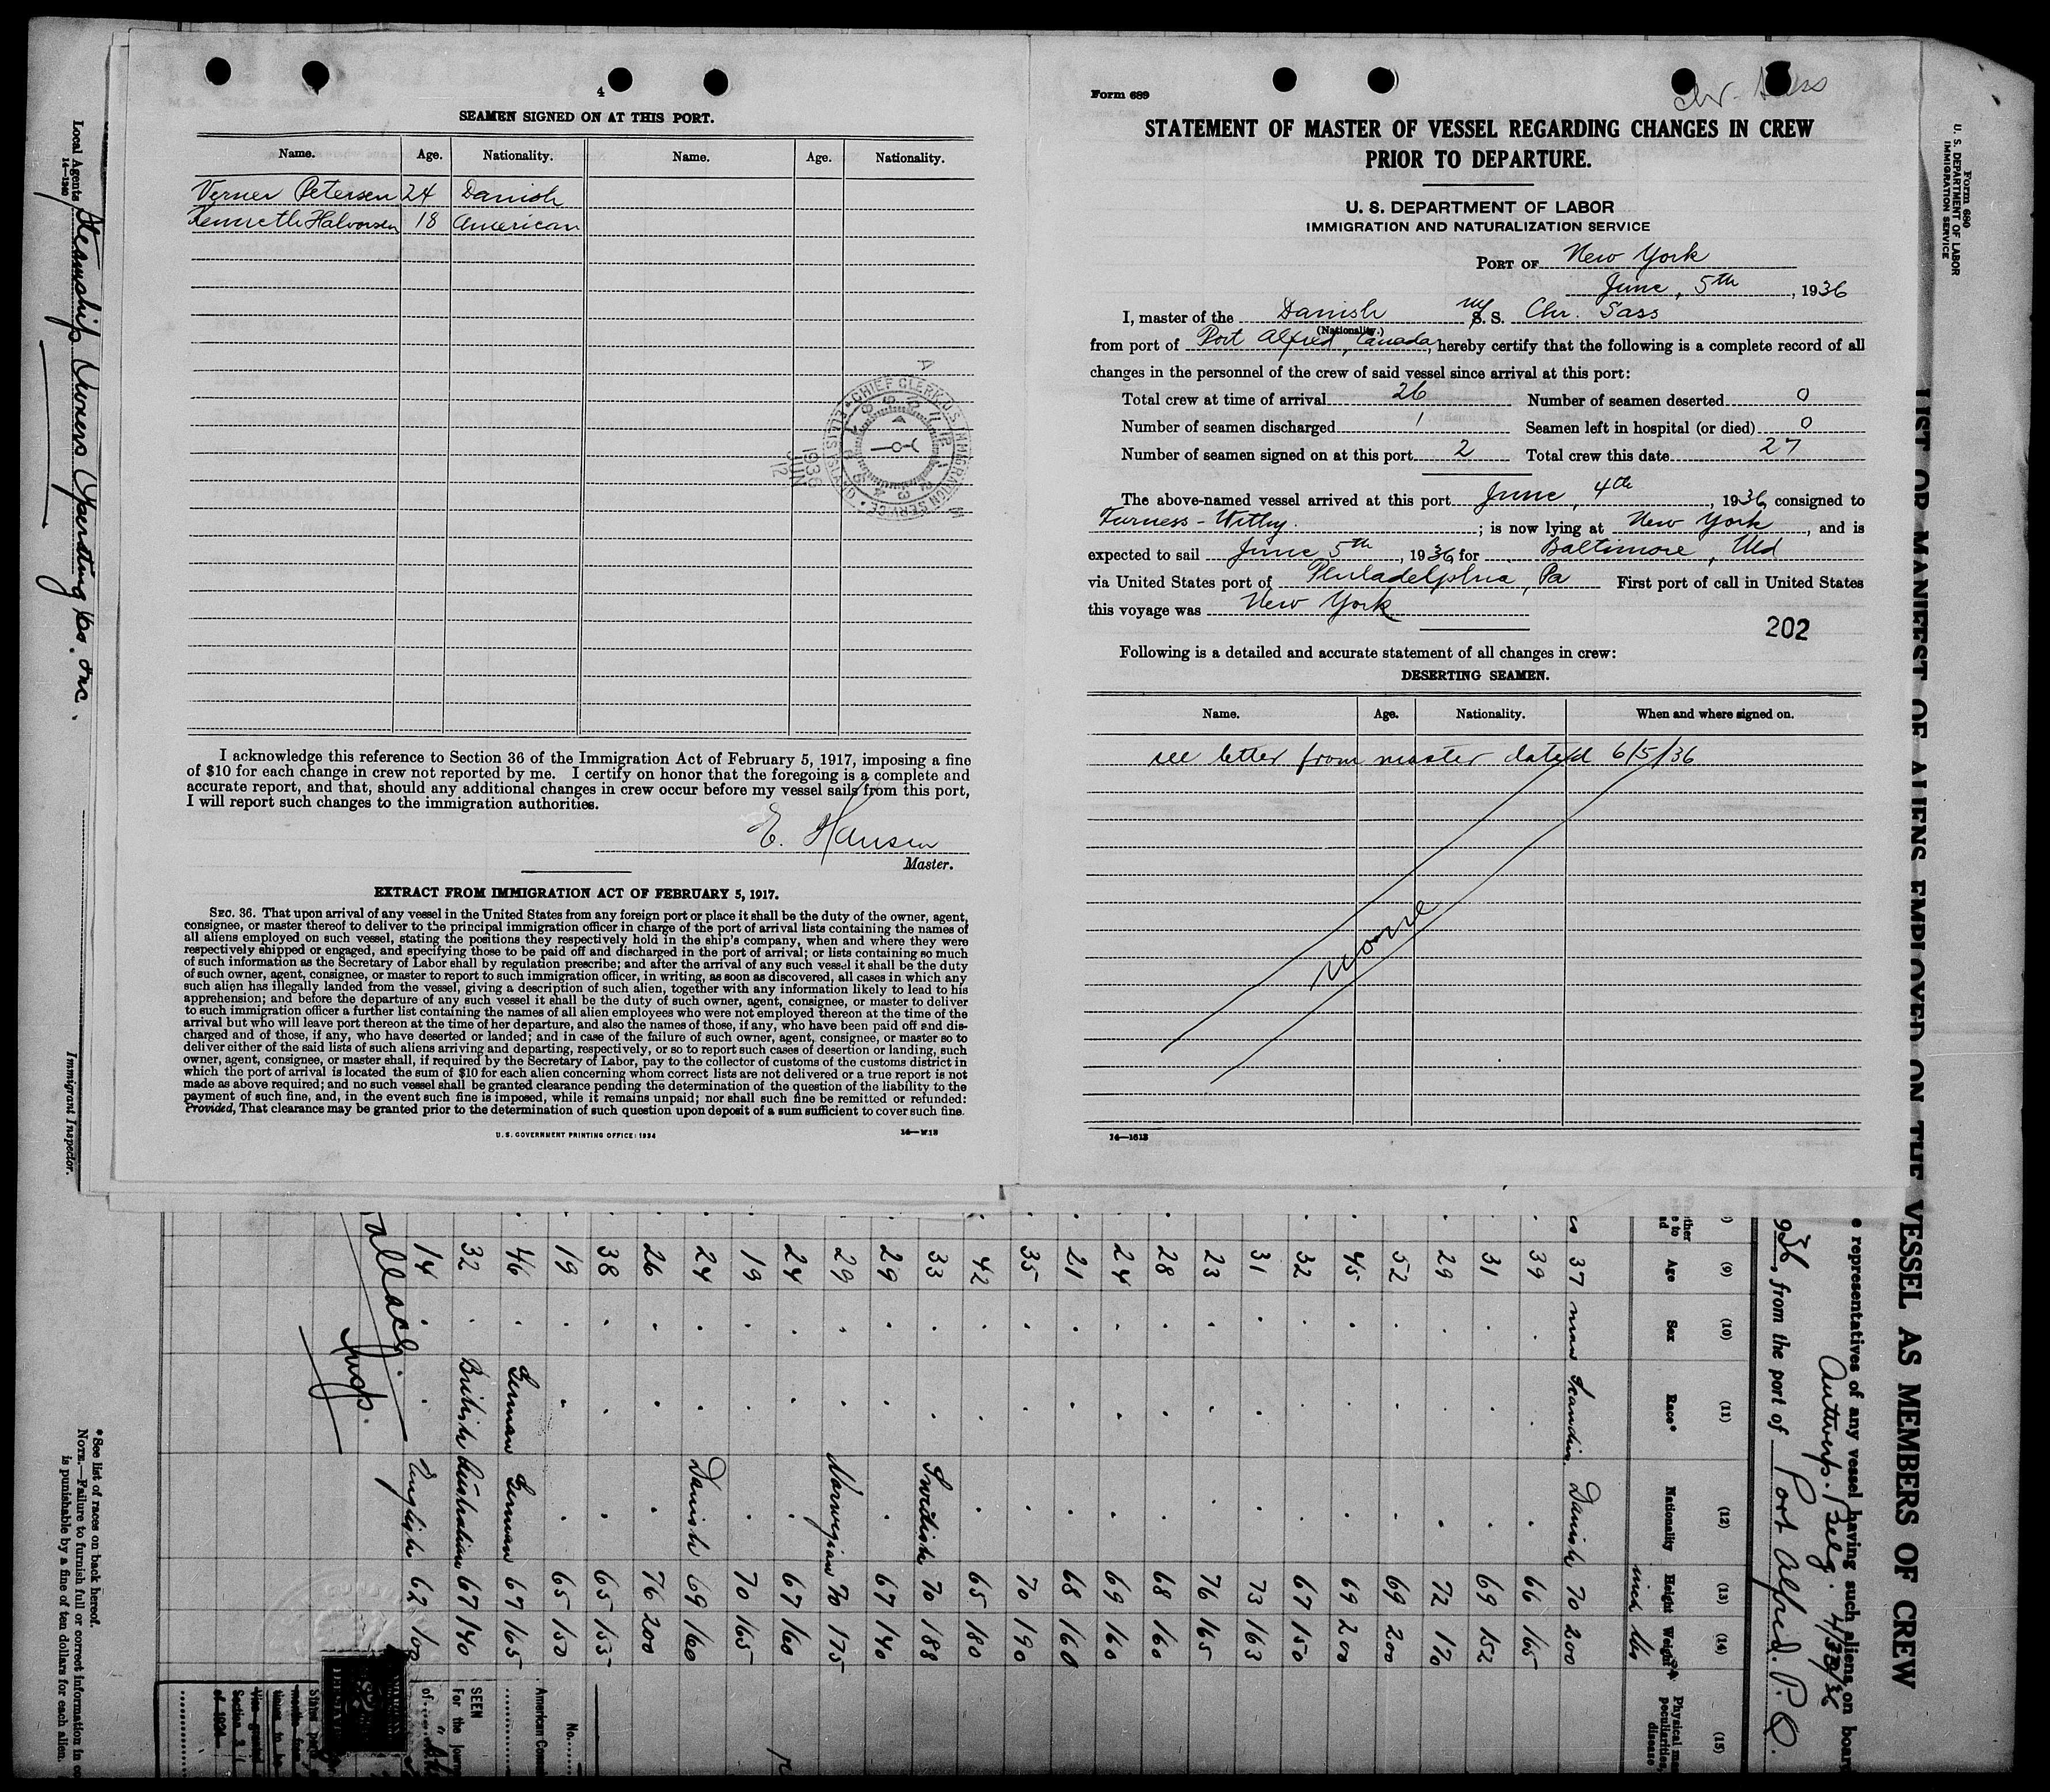 4
SEAMEN SIGNED ON AT THIS PORT.
Name. Age. Nationality. Name. Age. Nationality.
Verner Petersen 24 Danish
Kenneth Halvorsen 18 American
CHIEF CLERK U.S. IMMIGRATION SERVICE
ELLIS ISLAND
1936 JUN 12
I acknowledge this reference to Section 36 of the Immigration Act of February 5, 1917, imposing a fine
of $10 for each change in crew not reported by me. I certify on honor that the foregoing is a complete and
accurate report, and that, should any additional changes in crew occur before my vessel sails from this port,
I will report such changes to the immigration authorities.
E. Hansen
Master.
EXTRACT FROM IMMIGRATION ACT OF FEBRUARY 5, 1917.
SEC. 36. That upon arrival of any vessel in the United States from any foreign port or place it shall be the duty of the owner, agent,
consignee, or master thereof to deliver to the principal immigration officer in charge of the port of arrival lists containing the names of
all aliens employed on such vessel, stating the positions they respectively hold in the ship's company, when and where they were
respectively shipped or engaged, and specifying those to be paid off and discharged in the port of arrival; or lists containing so much
of such information as the Secretary of Labor shall by regulation prescribe; and after the arrival of any such vessel it shall be the duty
of such owner, agent, consignee, or master to report to such immigration officer, in writing, as soon as discovered, all cases in which any
such alien has illegally landed from the vessel, giving a description of such alien, together with any information likely to lead to his
apprehension; and before the departure of any such vessel it shall be the duty of such owner, agent, consignee, or master to deliver
to such immigration officer a further list containing the names of all alien employees who were not employed thereon at the time of the
arrival but who will leave port thereon at the time of her departure, and also the names of those, if any, who have been paid off and dis-
charged and of those, if any, who have deserted or landed; and in case of the failure of such owner, agent, consignee, or master so to
deliver either of the said lists of such aliens arriving and departing, respectively, or so to report such cases of desertion or landing, such
owner, agent, consignee, or master shall, if required by the Secretary of Labor, pay to the collector of customs of the customs district in
which the port of arrival is located the sum of $10 for each alien concerning whom correct lists are not delivered or a true report is not
made as above required; and no such vessel shall be granted clearance pending the determination of the question of the liability to the
payment of such fine, and, in the event such fine is imposed, while it remains unpaid; nor shall such fine be remitted or refunded:
Provided, That clearance may be granted prior to the determination of such question upon deposit of a sum sufficient to cover such fine.
U.S. GOVERNMENT PRINTING OFFICE: 1934
Form 689
Chr. Sass
STATEMENT OF MASTER OF VESSEL REGARDING CHANGES IN CREW
PRIOR TO DEPARTURE.
U. S. DEPARTMENT OF LABOR
IMMIGRATION AND NATURALIZATION SERVICE
PORT OF New York
June, 5th, 1936
I, master of the Danish M/S. S. Chr. Sass
(Nationality.)
from port of Port Alfred, Canada, hereby certify that the following is a complete record of all
changes in the personnel of the crew of said vessel since arrival at this port:
Total crew at time of arrival 26 Number of seamen deserted 0
Number of seamen discharged 1 Seamen left in hospital (or died) 0
Number of seamen signed on at this port 2 Total crew this date 27
The above-named vessel arrived at this port June, 4th, 1936, consigned to
Furness-Withy.; is now lying at New York, and is
expected to sail June 5th, 1936 for Baltimore, Md
via United States port of Philadelphia, Pa First port of call in United States
this voyage was New York
202
Following is a detailed and accurate statement of all changes in crew:
DESERTING SEAMEN.
Name. Age. Nationality. When and where signed on.
see letter from master dated 6/5/36
none
14—1613
Local Agents Steamship Owners Operating Co. Inc.
14—1240
Immigrant Inspector.
* See list of races on back hereof.
NOTE.—Failure to furnish full or correct information in
is punishable by a fine of ten dollars for each alien.
Form 680
U. S. DEPARTMENT OF LABOR
IMMIGRATION SERVICE
LIST OR MANIFEST OF ALIENS EMPLOYED ON THE VESSEL AS MEMBERS OF CREW
e representatives of any vessel having such aliens on boar
Antwerp. Belg. 4/30/36
936, from the port of Port Alfred. P.Q.
(9) (10) (11) (12) (13) (14) (15)
Age Sex Race* Nationality Height Weight Physical
inch lbs
peculiarities,
disease
37 man Scandin. Danish 70 200
39 . . . 66 165
31 . . . 69 152
29 . . . 72 170
52 . . . 69 200
45 . . . 69 200
32 . . . 67 150
31 . . . 73 163
23 . . . 76 165
28 . . . 68 160
24 . . . 69 160
21 . . . 68 160
35 . . . 70 190
42 . . . 65 180
33 . . Swedish 70 188
29 . . . 67 140
29 . . Norwegian 70 175
24 . . . 67 160
19 . . . 70 165
24 . . Danish 69 160
26 . . . 76 200
38 . . . 65 155
19 . . . 65 150
46 . German German 67 165
32 . British Australian 67 140
14 . . English 62 100
No.
American Consul
SEEN
For the journ
of